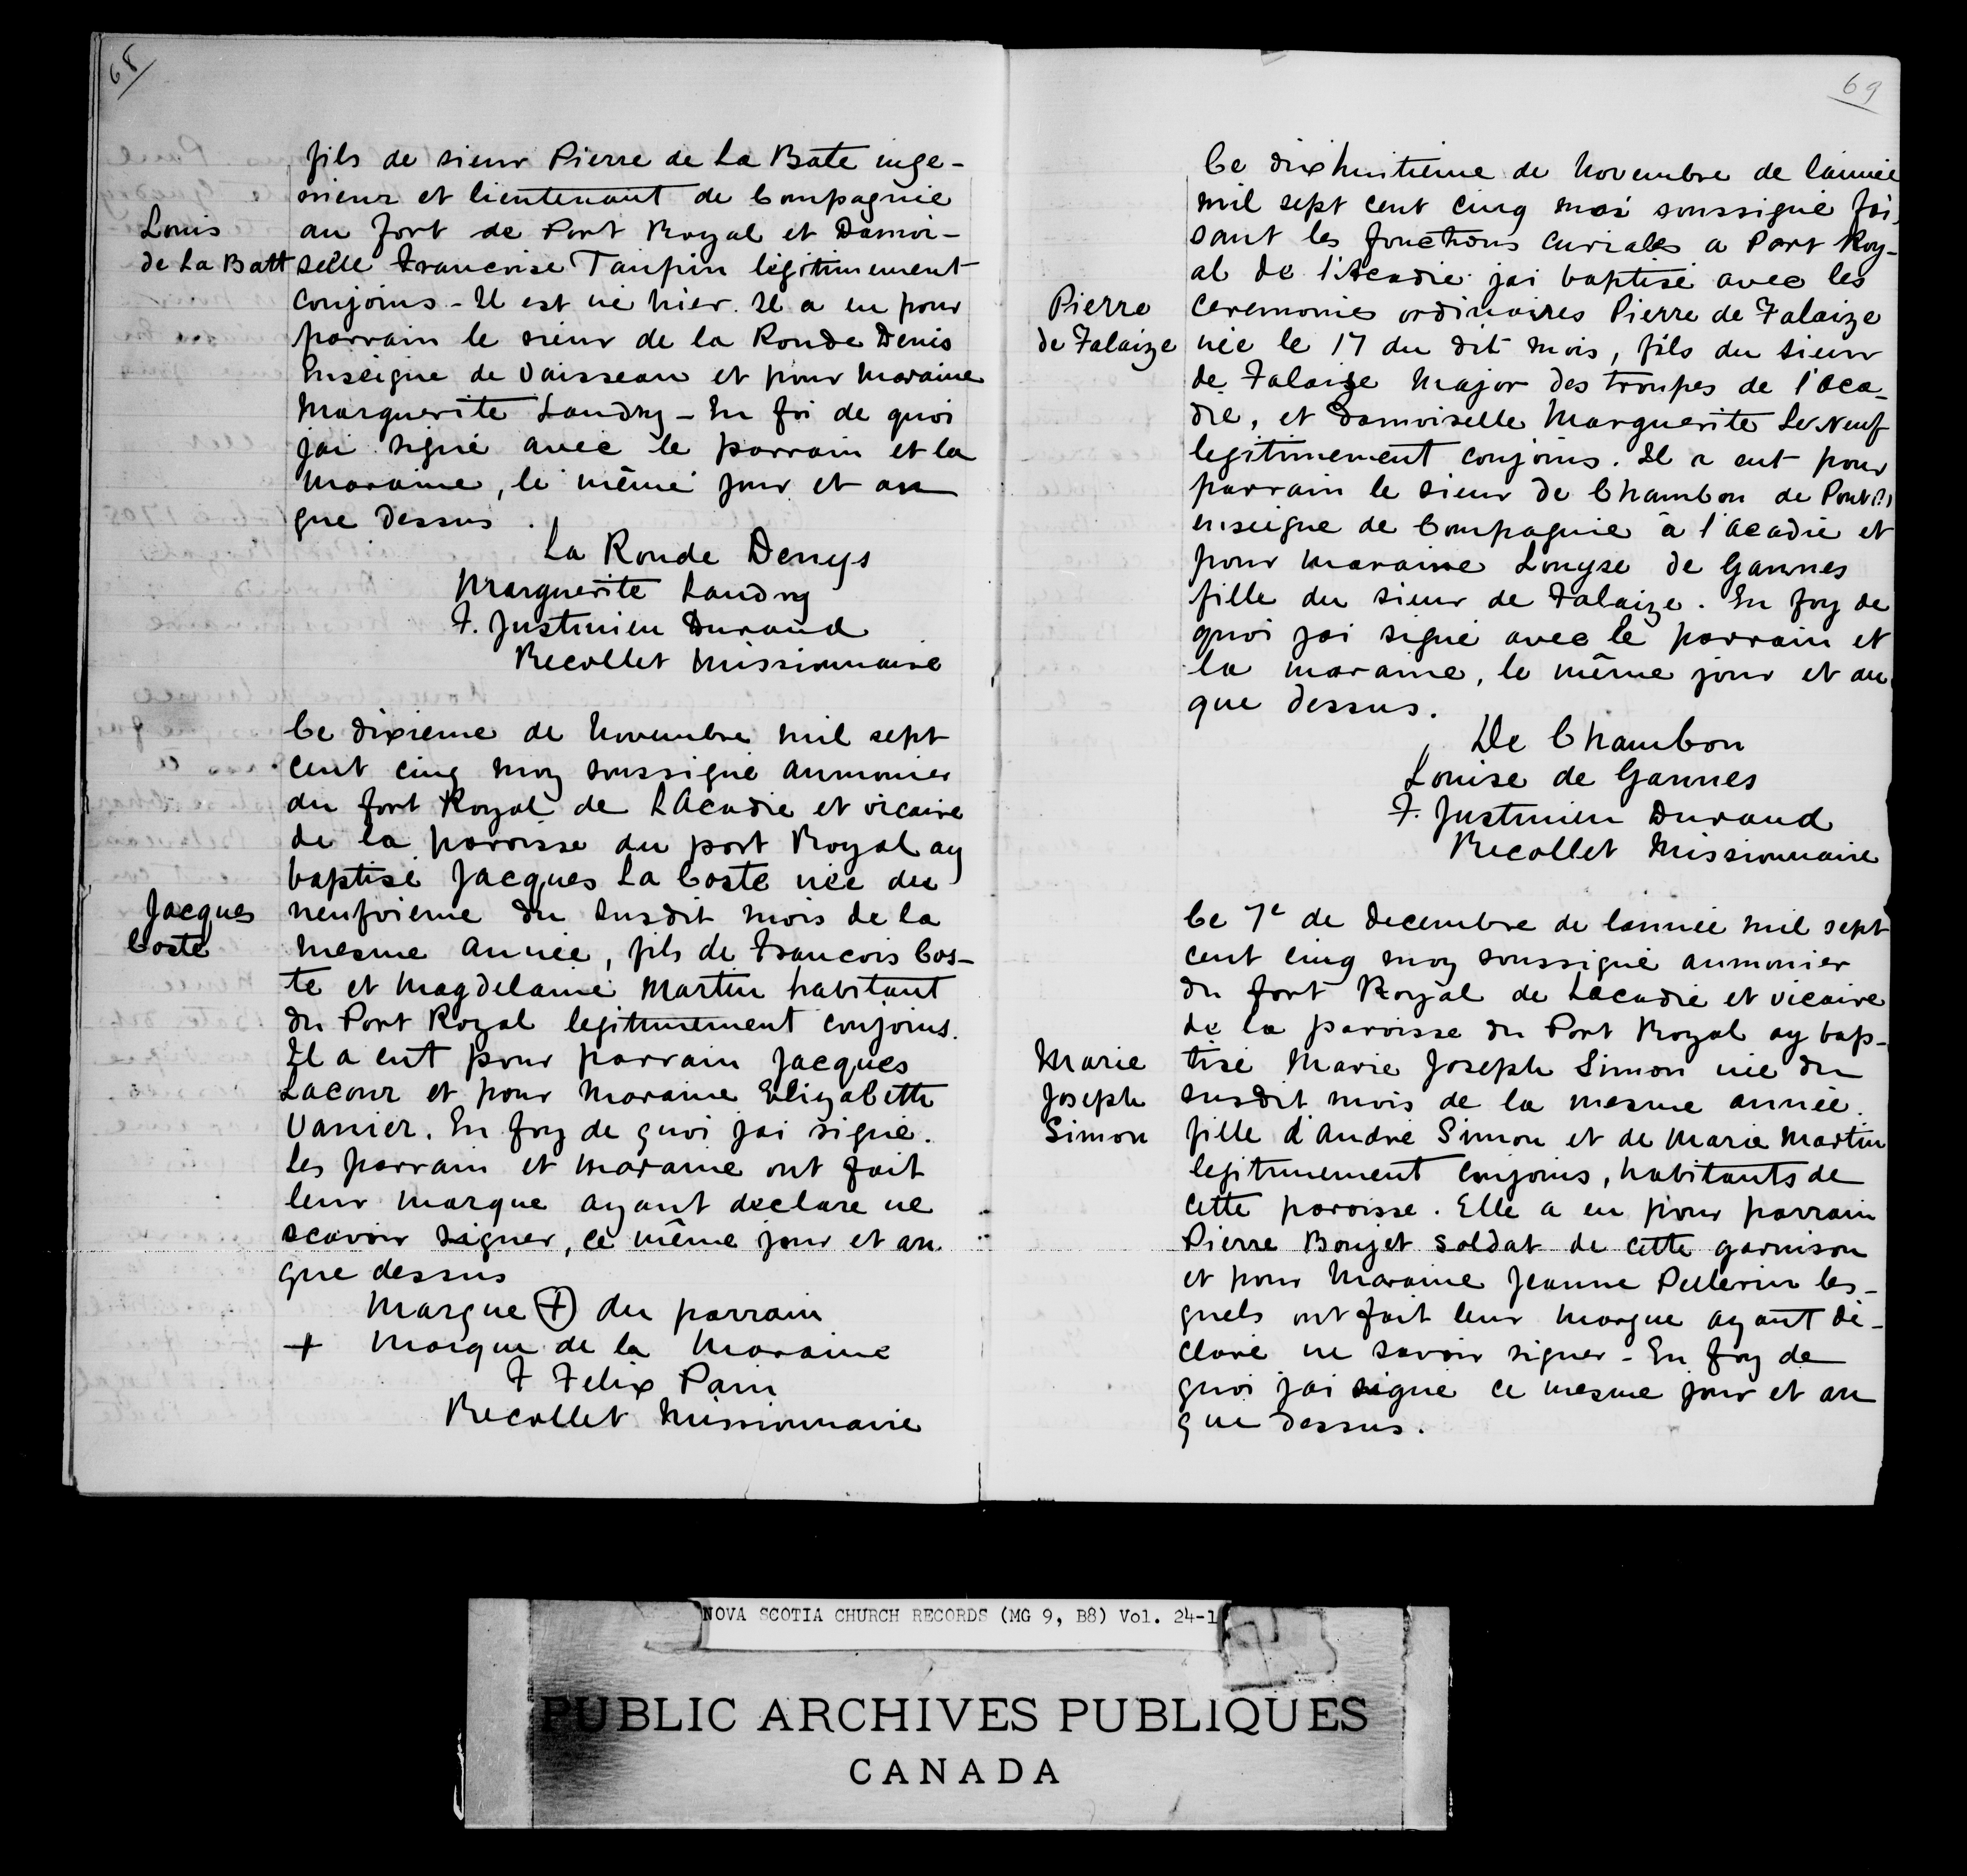 68
fils de sieur Pierre de La Bate inge-
nieur et lieutenant de Compagnie
Louis
au fort de Port Royal et Damoi-
de La Batt
selle Francoise Taupin légitimement
conjoins - Il est né hier. Il a eu pour
parrain le sieur de la Ronde Denis
Enseigne de Vaisseau et pour maraine
Marguerite Landry - En foi de quoi
jai signé avec le parrain et la
maraine, le même jour et an
que dessus.
La Ronde Denys
Marguerite Landry
F. Justinien Durand
Recollet Missionnaire
Ce dixieme de Novembre mil sept
cent cinq moy soussigné aumonier
du fort Royal de LAcadie et vicaire
de la paroisse du port Royal ay
baptisé Jacques La Coste née du
Jacques
neufvieme du susdit mois de la
Coste
mesme année, fils de Francois Cos-
te et Magdelaine Martin habitant
du Port Royal legitimement conjoins.
Il a eut pour parrain Jacques
Lacour et pour maraine Elizabeth
Vanier. En foy de quoi jai signé.
les parrain et maraine ont fait
leur marque ayant declare ne
scavoir signer, ce même jour et an
que dessus
Marque + du parrain
+ Marque de la Maraine
F Felix Pain
Recollet Missionnaire
69
Ce dix huitieme de Novembre de lánnée
mil sept cent cinq moi soussigné fai-
sant les fonctions curiales a Port Roy-
al de l'Acadie jai baptisé avec les
Pierre
ceremonies ordinaires Pierre de Falaize
de Falaize
née le 17 du dit mois, fils du sieur
de Falaize Major des troupes de l'Aca-
die, et Damoiselle Marguerite Le Neuf
legitimement conjoins. Il a eut pour
parrain le sieur de Chambon de
enseigne de Compagnie à l'acadie et
pour maraine Louyse de Gannes
fille du sieur de Falaize. En foy de
quoi jai signé avec le parrain et
la maraine, le même jour et an
que dessus.
De Chambon
Louise de Gannes
F. Justinien Durand
Recollet Missionnaire
Ce 7e de decembre de lannée mil sept
cent cinq moy soussigné aumonier
du fort Royal de Lacadie et vicaire
de la paroisse du Port Royal ay bap-
Marie
tisé Marie Joseph Simon née du
Joseph
susdit mois de la mesme année.
Simon
fille d'André Simon et de Marie Martin
legitimement conjoins, habitants de
cette paroisse. Elle a eu pour parrain
Pierre Boujet soldat de cette garnison
et pour Maraine Jeanne Pellerin les-
quels ont fait leur marque ayant dé-
claré ne savoir signer - En foy de
quoi jai signé ce mesme jour et an
que dessus.
NOVA SCOTIA CHURCH RECORDS (MG 9, B8) Vol. 24-1
PUBLIC ARCHIVES PUBLIQUES
CANADA